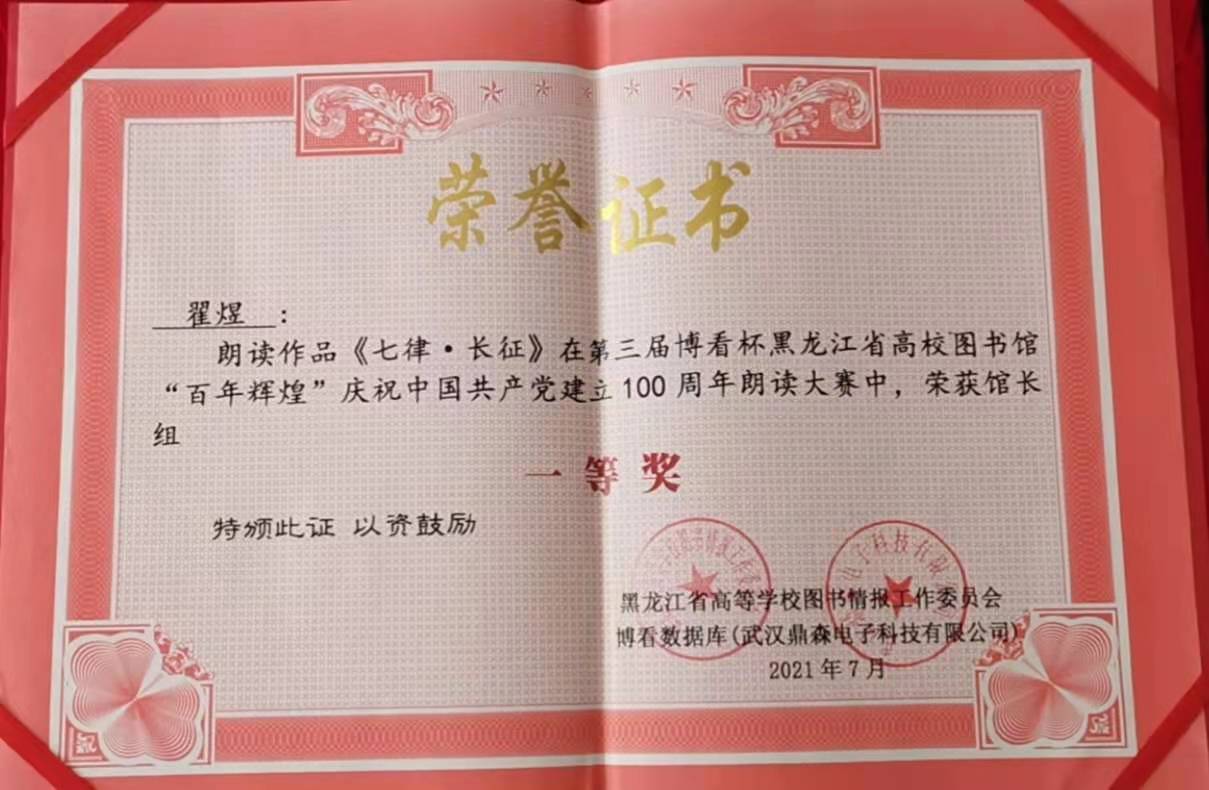 荣誉证书
翟煜：
朗读作品《七律·长征》在第三届博看杯黑龙江省高校图书馆
“百年辉煌”庆祝中国共产党建立100周年朗读大赛中，荣获馆长
组
一等奖
特颁此证 以资鼓励
黑龙江省高等学校图书情报工作委员会
博看数据库(武汉鼎森电子科技有限公司)
2021年7月